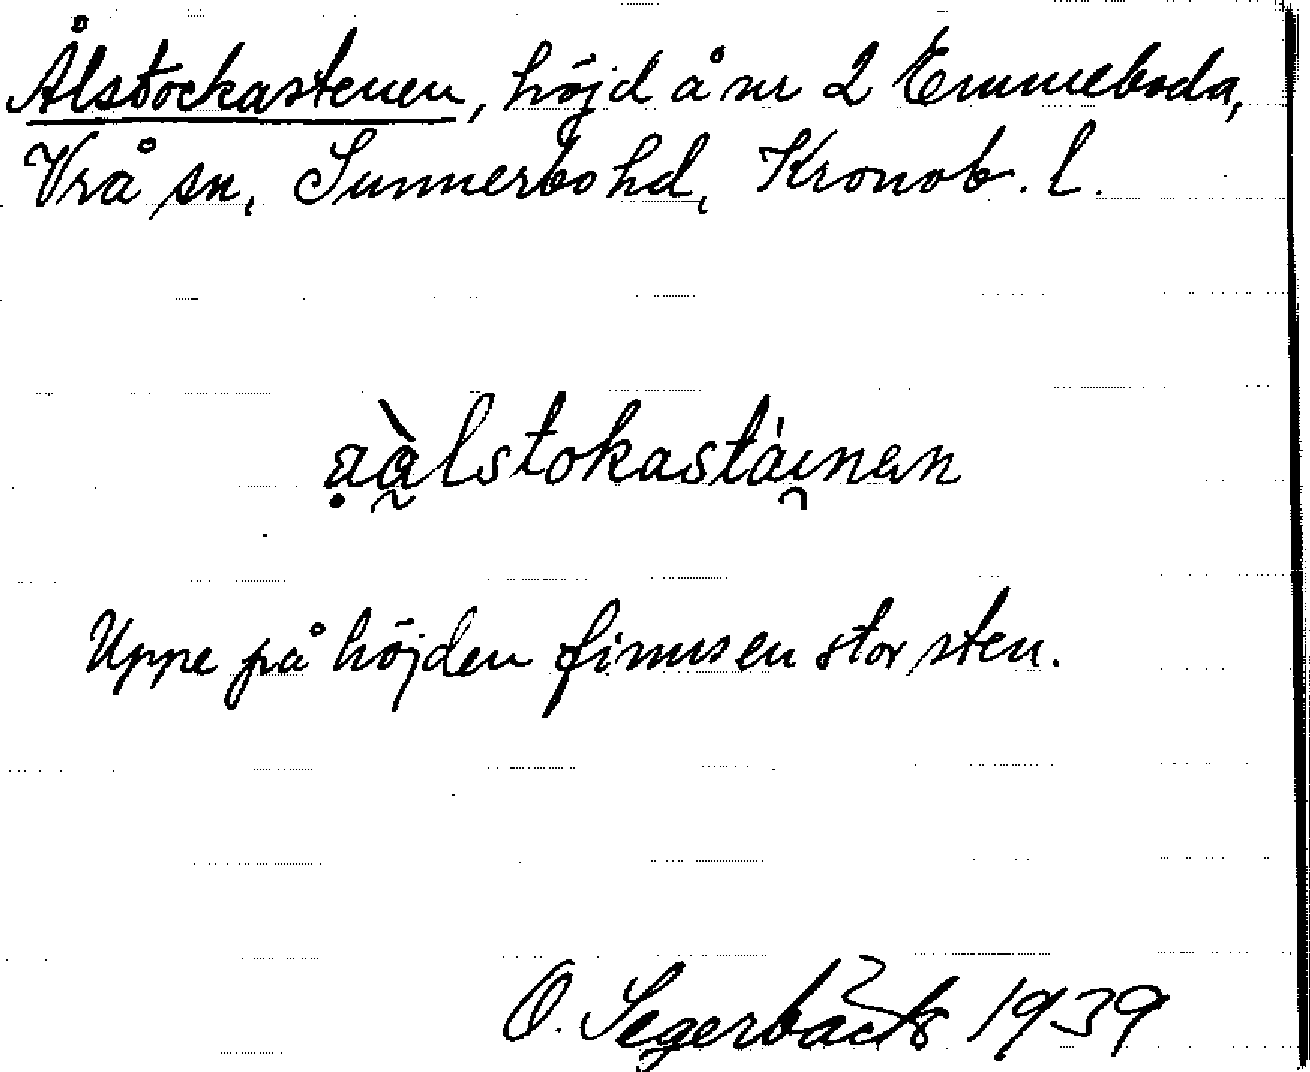 Ålstockastenen, höjd å nr 2 Emmeboda,
Vrå sn, Sunnerbo hd, Kronob. l.
a̤àlstokastáı̯nen
Uppe på höjden finns en stor sten.
O. Segerbäck 1939